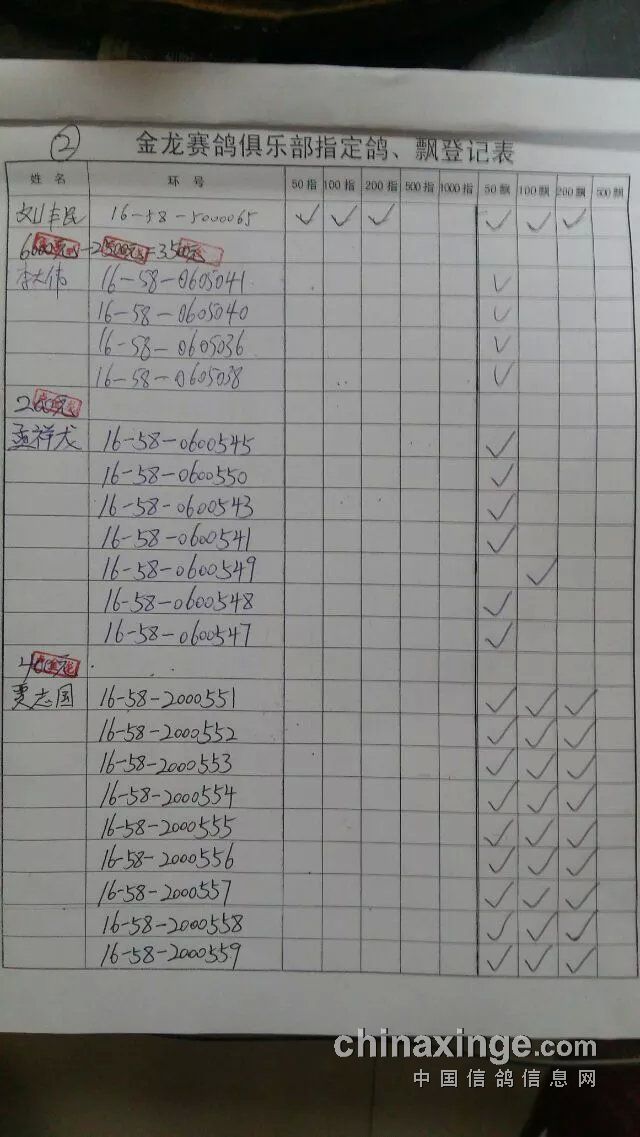 ②
金龙赛鸽俱乐部指定鸽、飘登记表
姓名 环号 50指 100指 200指 500指 1000指 50飘 100飘 200飘 500飘
丰民 16-58-5000065 ✓ ✓ ✓ ✓ ✓ ✓
李大伟 16-58-0605041 ✓
16-58-0605040 ✓
16-58-0605036 ✓
16-58-0605038 ✓
200元
孟祥龙 16-58-0600545 ✓
16-58-0600550 ✓
16-58-0600543 ✓
16-58-0600541 ✓
16-58-0600549 ✓
16-58-0600548 ✓
16-58-0600547 ✓
400元
贾志国 16-58-2000551 ✓ ✓ ✓
16-58-2000552 ✓ ✓ ✓
16-58-2000553 ✓ ✓ ✓
16-58-2000554 ✓ ✓ ✓
16-58-2000555 ✓ ✓ ✓
16-58-2000556 ✓ ✓ ✓
16-58-2000557 ✓ ✓ ✓
16-58-2000558 ✓ ✓ ✓
16-58-2000559 ✓ ✓ ✓
chinaxinge.com
中国信鸽信息网